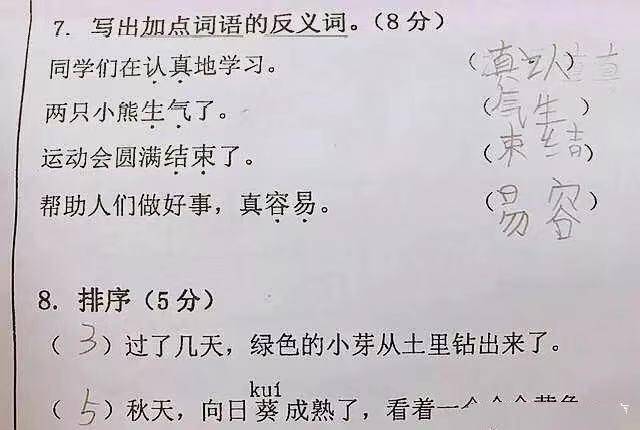 7. 写出加点词语的反义词。(8分)
同学们在认真地学习。 (真认)
两只小熊生气了。 (气生)
运动会圆满结束了。 (束结)
帮助人们做好事，真容易。 (易容)
8. 排序(5分)
(3)过了几天，绿色的小芽从土里钻出来了。
kuí
(5)秋天，向日葵成熟了，看着一个个金黄色